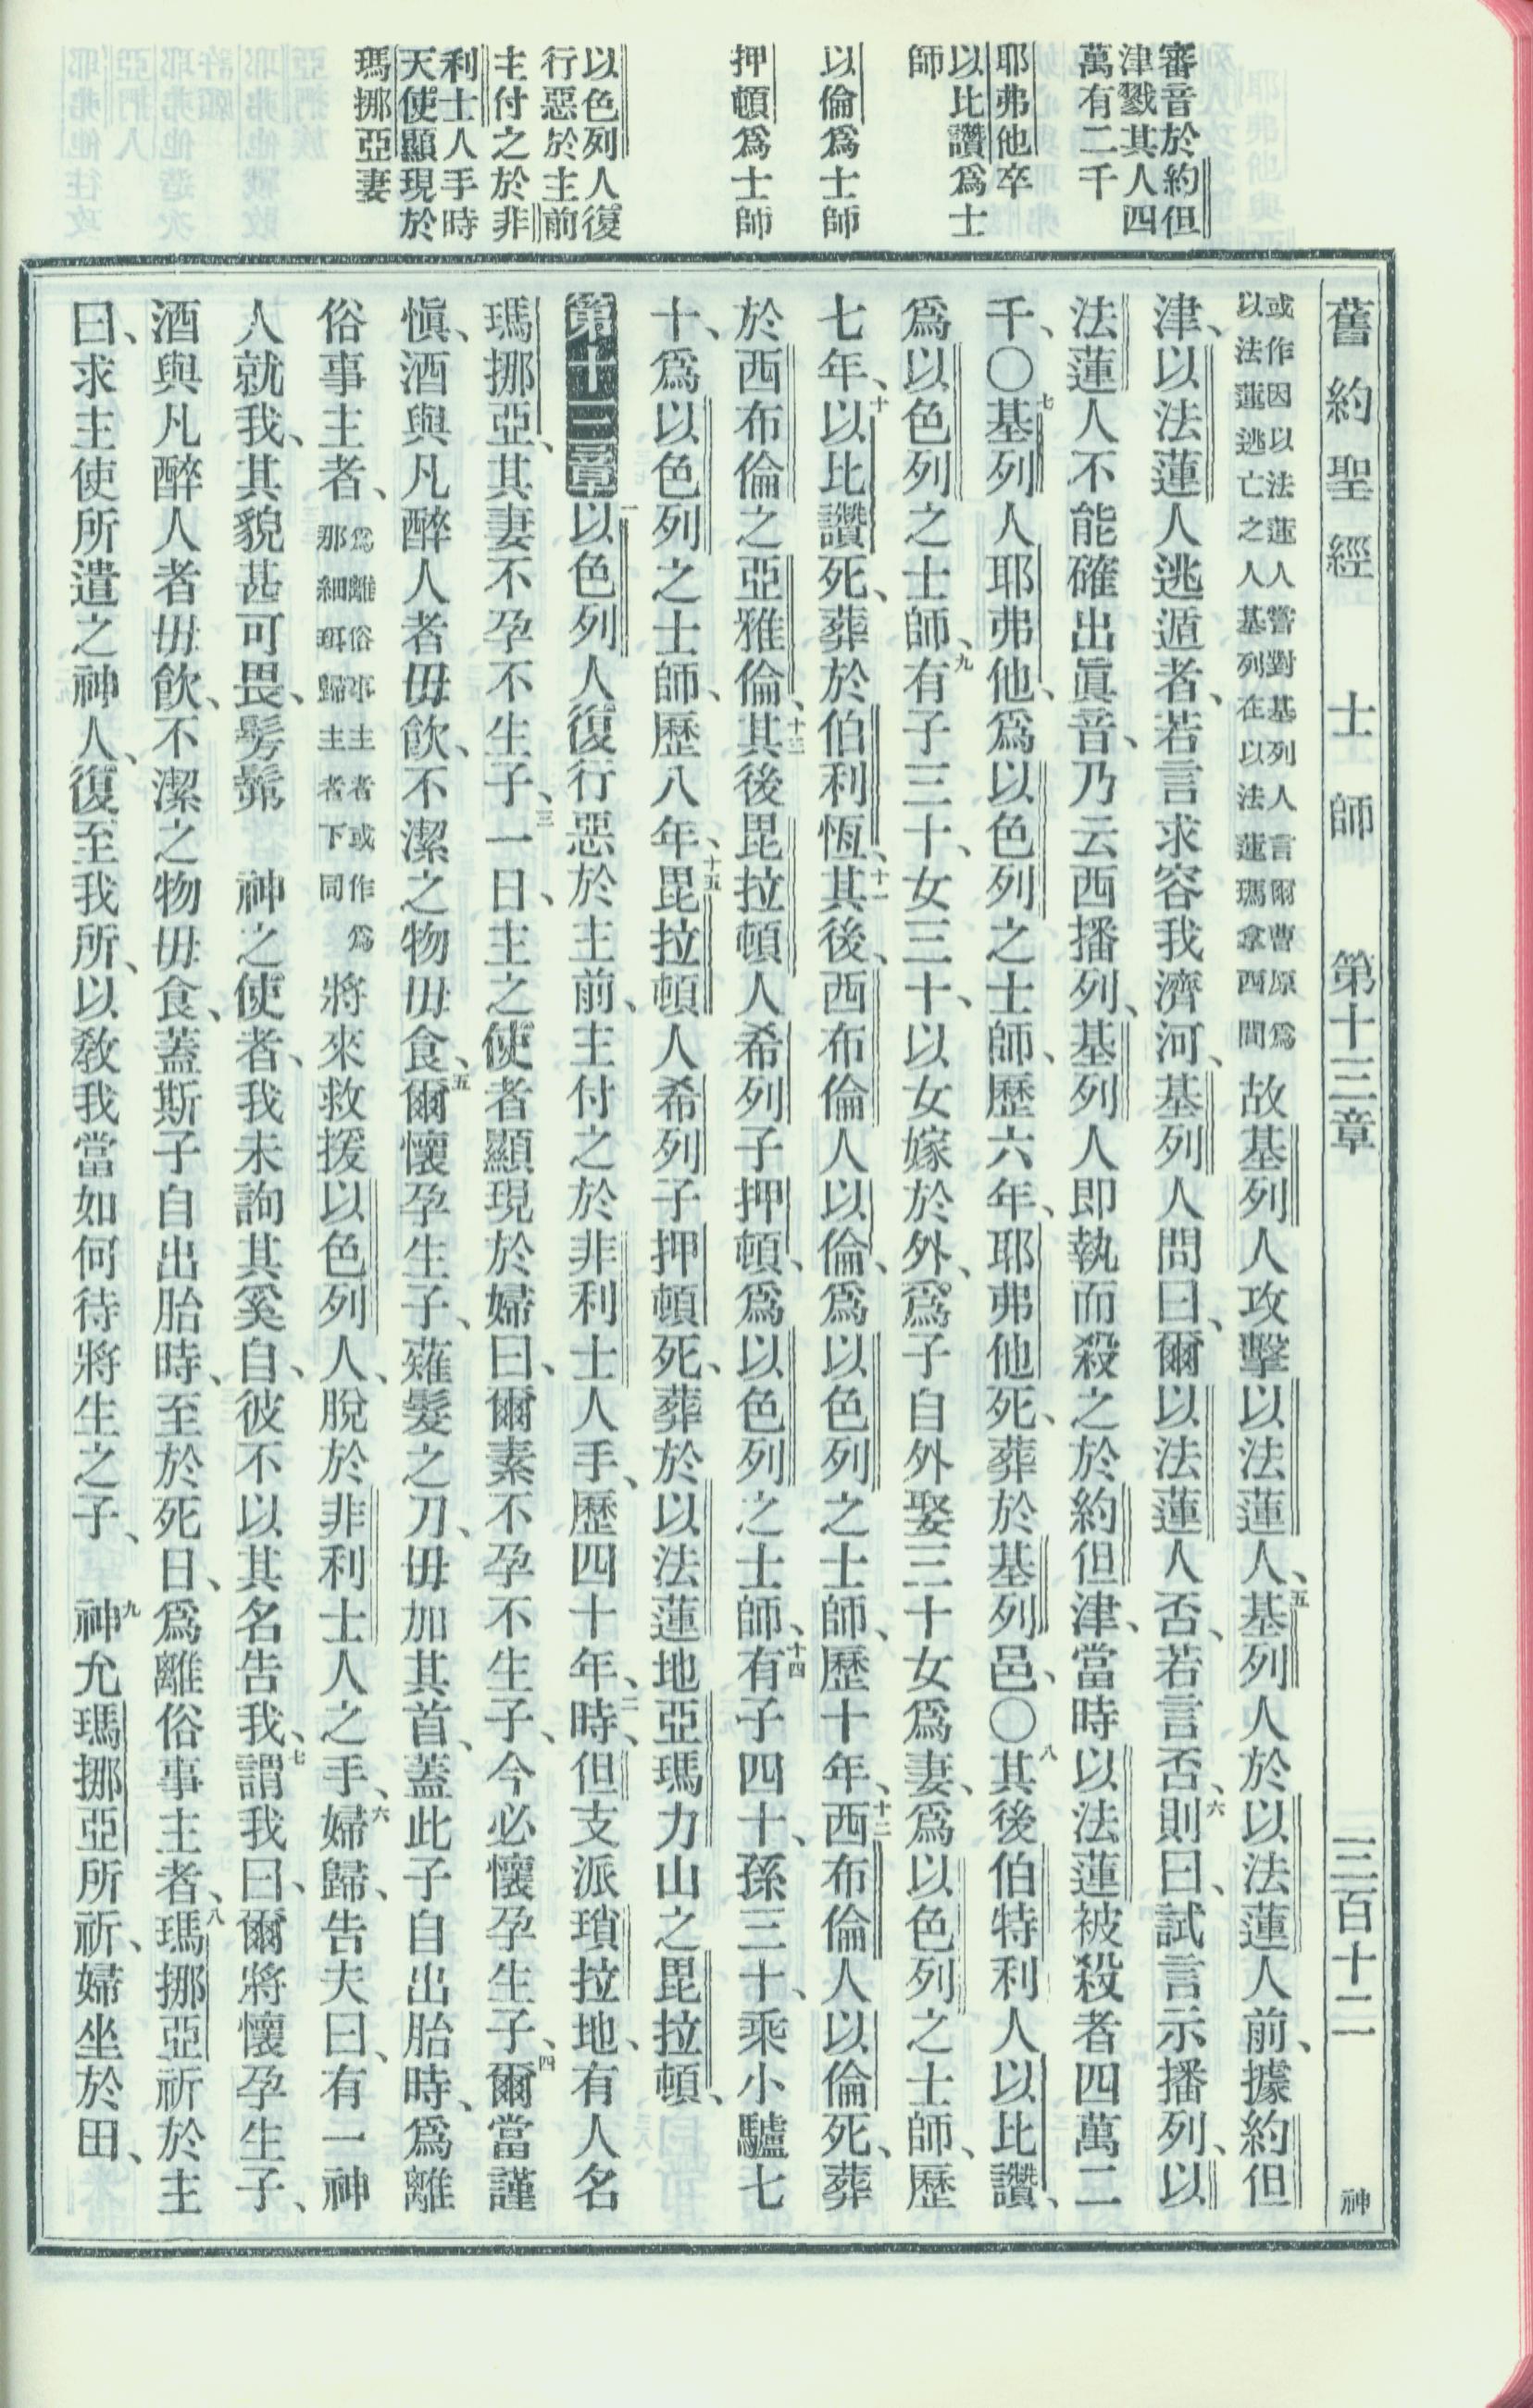 審音於約但
津戮其人四
萬有二千
耶弗他卒
以比讚爲士
師
以倫爲士師
押頓爲士師
以色列人復
行惡於主前
主付之於非
利士人手時
天使顯現於
瑪挪亞妻
舊約聖經 士師 第十三章 三百十二 神
或作因以法蓮人嘗對基列人言爾曹原爲
以法蓮逃亡之人基列在以法蓮瑪拿西間
故基列人攻擊以法蓮人、五基列人於以法蓮人前、據約但
津、以法蓮人逃遁者、若言求容我濟河、基列人問曰、爾以法蓮人否、若言否、六則曰、試言示播列、以
法蓮人不能確出眞音、乃云西播列、基列人即執而殺之於約但津、當時以法蓮被殺者四萬二
千、〇七基列人耶弗他、爲以色列之士師、歷六年、耶弗他死、葬於基列邑、〇八其後伯特利人以比讚、
爲以色列之士師、九有子三十、女三十、以女嫁於外、爲子自外娶三十女爲妻、爲以色列之士師、歷
七年、十以比讚死、葬於伯利恆、十一其後、西布倫人以倫、爲以色列之士師、歷十年、十二西布倫人以倫死、葬
於西布倫之亞雅倫、十三其後毘拉頓人希列子押頓、爲以色列之士師、十四有子四十、孫三十、乘小驢七
十、爲以色列之士師、歷八年、十五毘拉頓人希列子押頓死、葬於以法蓮地亞瑪力山之毘拉頓、
第十三章 一以色列人復行惡於主前、主付之於非利士人手、歷四十年、二時、但支派瑣拉地、有人名
瑪挪亞、其妻不孕不生子、三一日、主之使者顯現於婦曰、爾素不孕不生子、今必懷孕生子、四爾當謹
愼、酒與凡醉人者毋飮、不潔之物毋食、五爾懷孕生子、薙髮之刀、毋加其首、蓋此子自出胎時、爲離
俗事主者、
爲離俗事主者或作爲
那細珥歸主者下同
將來救援以色列人、脫於非利士人之手、六婦歸、告夫曰、有一神
人就我、其貌甚可畏、髣髴 神之使者、我未詢其奚自、彼不以其名告我、七謂我曰、爾將懷孕生子、
酒與凡醉人者毋飮、不潔之物毋食、蓋斯子自出胎時、至於死日、爲離俗事主者、八瑪挪亞祈於主
曰、求主使所遣之神人、復至我所、以敎我當如何待將生之子、 九神允瑪挪亞所祈、婦坐於田、